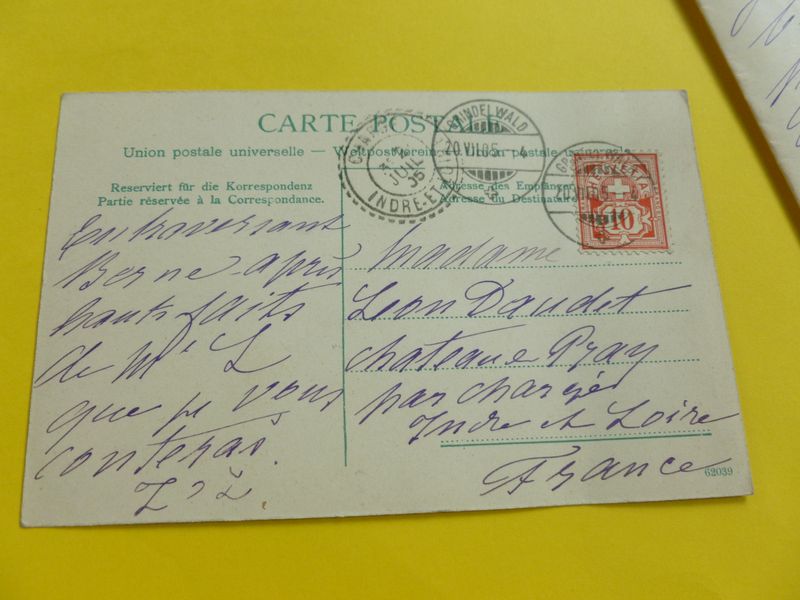 CARTE POSTALE
Union postale universelle — Weltpostverein — Union postale
Reserviert für die Korrespondenz
Partie réservée à la Correspondance.
Adresse des Empfängers
Adresse du Destinataire
GRINDELWALD
20.VII.05.-4
INDRE-ET-
JUIL
05
HELVETIA
10
En traversant
Berne après
hauts faits
de Mr L
que je vous
conterai.
Madame
Leon Daudet
chateau Pray
par chargé
Indre et Loire
France
62039